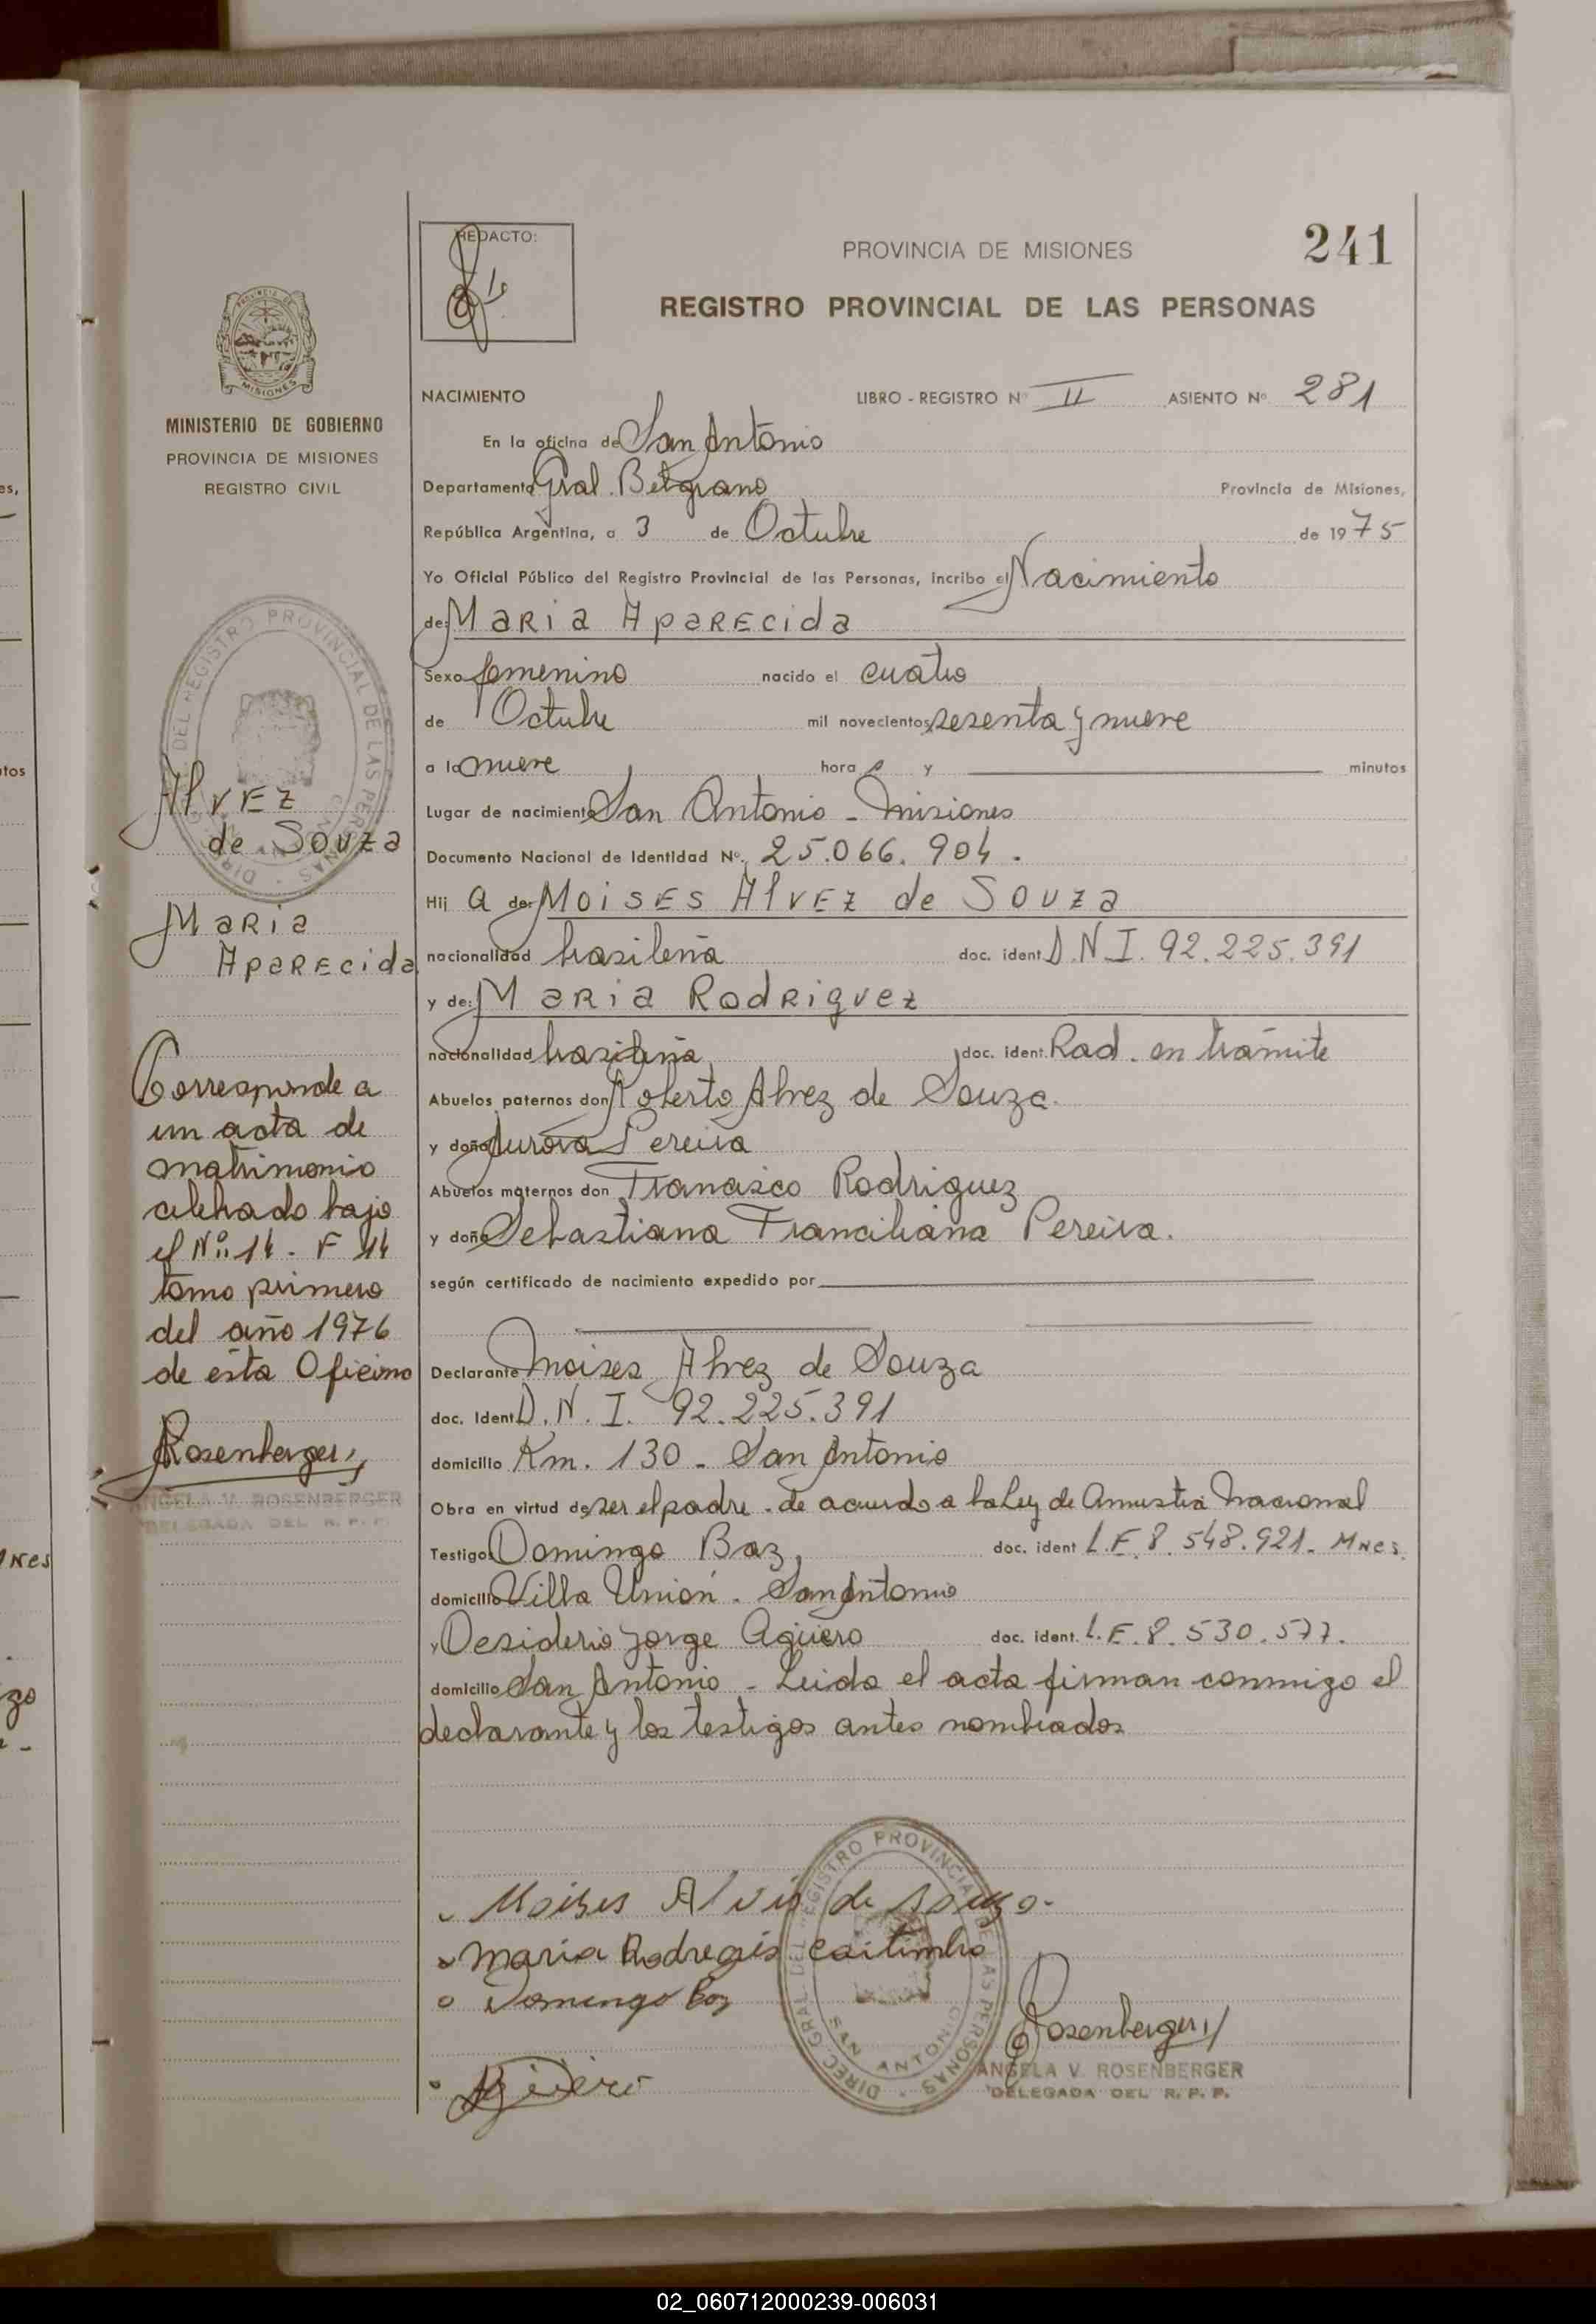 241
REDACTO:
PROVINCIA DE MISIONES
REGISTRO PROVINCIAL DE LAS PERSONAS
MISIONES
MINISTERIO DE GOBIERNO
PROVINCIA DE MISIONES
REGISTRO CIVIL
Alvez
de Souza
Maria
Aparecida
Corresponde a
un acta de
matrimonio
celebrado bajo
el Nº: 14 - F 14
tomo primero
del año 1976
de esta Oficina
Rosenberger
ANGELA V. ROSENBERGER
DELEGADA DEL R. P. P.
NACIMIENTO LIBRO - REGISTRO Nº II ASIENTO Nº 281
En la oficina de San Antonio
Departamento Gral. Belgrano Provincia de Misiones,
República Argentina, a 3 de Octubre de 1975
Yo Oficial Público del Registro Provincial de las Personas, incribo el Nacimiento
de: Maria Aparecida
Sexo femenino nacido el cuatro
de Octubre mil novecientos sesenta y nueve
a la nueve hora s y minutos
Lugar de nacimiento San Antonio - Misiones
Documento Nacional de Identidad Nº. 25.066.904.
Hij a de: Moises Alvez de Souza
nacionalidad brasileña doc. ident. D.N.I. 92.225.391
y de: Maria Rodriguez
nacionalidad brasileña doc. ident. Rad. en trámite
Abuelos paternos don Roberto Alvez de Souza.
y doña Aurora Pereira
Abuelos maternos don Francisco Rodriguez
y doña Sebastiana Franciliana Pereira.
según certificado de nacimiento expedido por
Declarante Moises Alvez de Souza
doc. Ident. D.N.I. 92.225.391
domicilio Km. 130 - San Antonio
Obra en virtud de ser el padre - de acuerdo a la Ley de Amnistia Nacional
Testigos Domingo Baz, doc. ident L.E. 8.548.921. Mnes.
domicilio Villa Unión - San Antonio
y Desiderio Jorge Agüero doc. ident. L.E. 8.530.577.
domicilio San Antonio - Leida el acta firman conmigo el
declarante y los testigos antes nombrados
Moises Alvis de Souza.
Maria Rodregis
Domingo Baz
Agüero
DIREC. GRAL. DEL REGISTRO PROVINCIAL DE LAS PERSONAS
SAN ANTONIO
Rosenberger
ANGELA V. ROSENBERGER
DELEGADA DEL R. P. P.
02_060712000239-006031